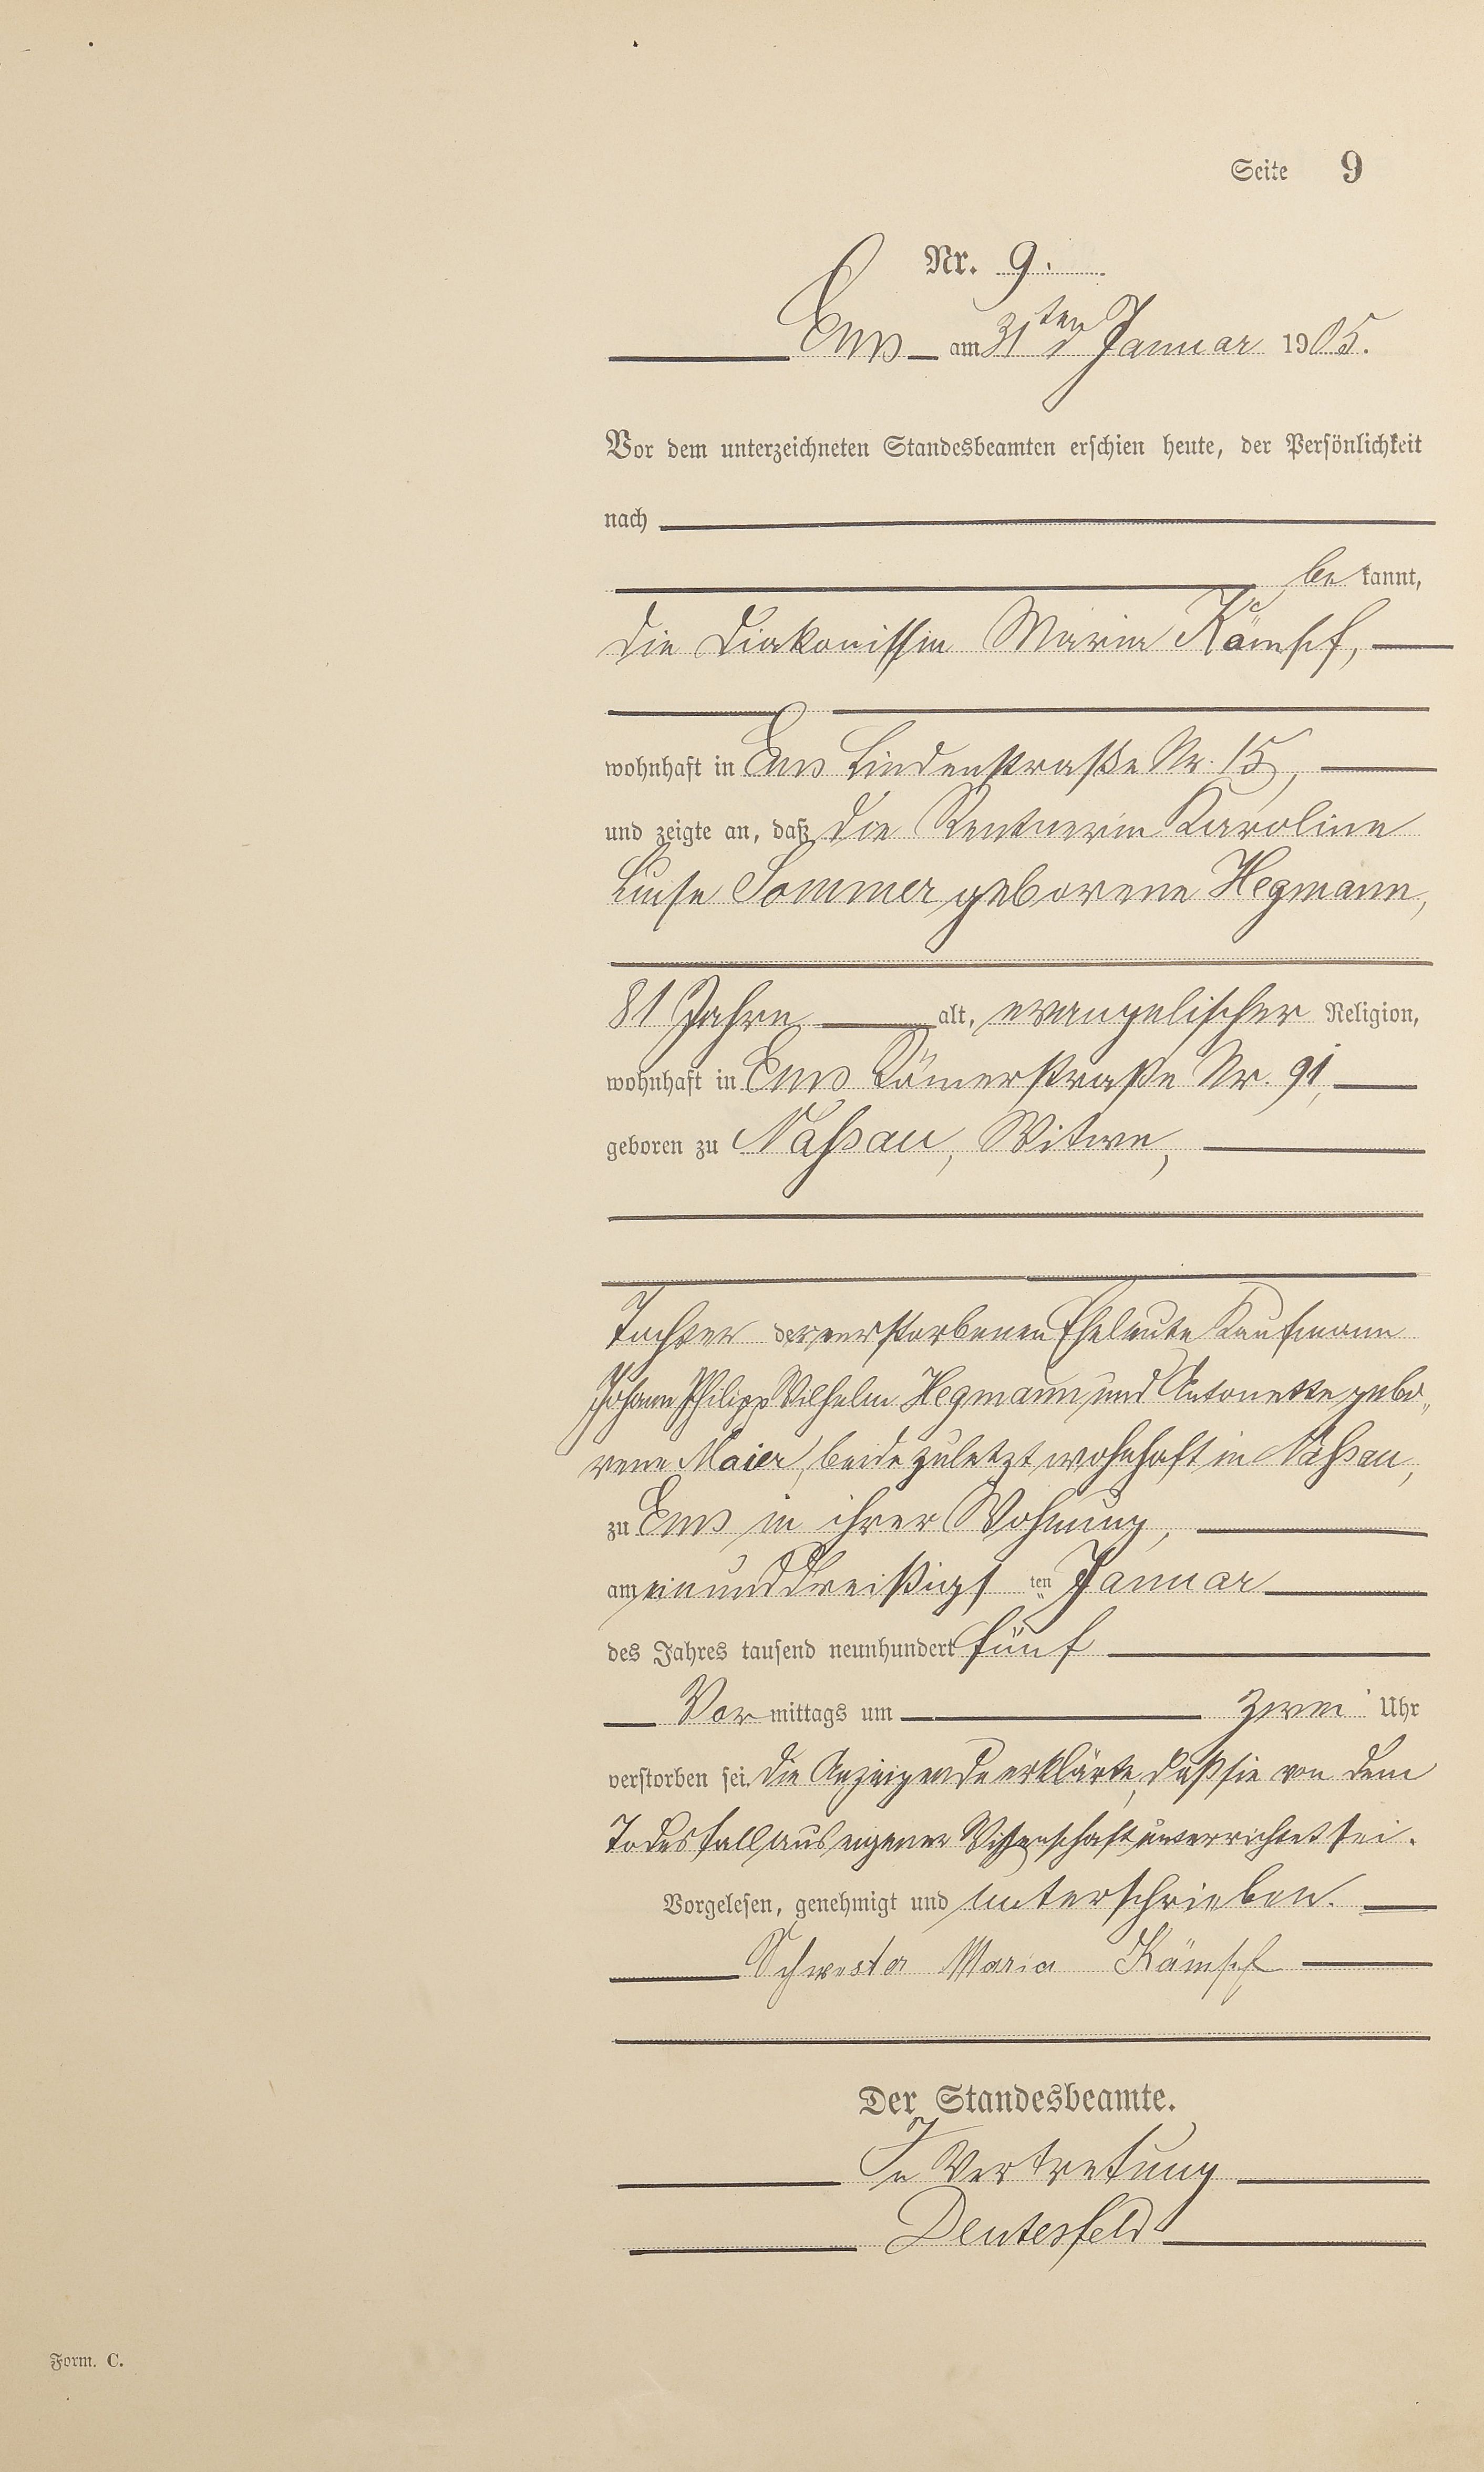 Seite 9
Nr. 9.
Ems am 31ten Januar 1905.
Vor dem unterzeichneten Standesbeamten erschien heute, der Persönlichkeit
nach
be kannt,
die Diakonissin Maria Kämpf,
wohnhaft in Ems Lindenstraße Nr. 15,
und zeigte an, daß die Rentnerin Karoline
Luise Sommer geborene Hegmann,
81 Jahre alt, evangelischer Religion,
wohnhaft in Ems Römerstraße Nr. 91,
geboren zu Nassau, Witwe,
Tochter der verstorbenen Eheleute Kaufmann
Johann Philipp Wilhelm Hegmann und Antonette gebo„
rene Maier, beide zuletzt wohnhaft in Nassau,
zu Ems in ihrer Wohnung,
am einunddreißigs ten Januar
des Jahres tausend neunhundert fünf
Vor mittags um zwei Uhr
verstorben sei. Die Anzeigende erklärte, daß sie von dem
Todesfall aus eigener Wissenschaft unterrichtet sei.
Vorgelesen, genehmigt und unterschrieben.
Schwester Maria Kämpf
Der Standesbeamte.
In Vertretung
Deutesfeld
Form. C.